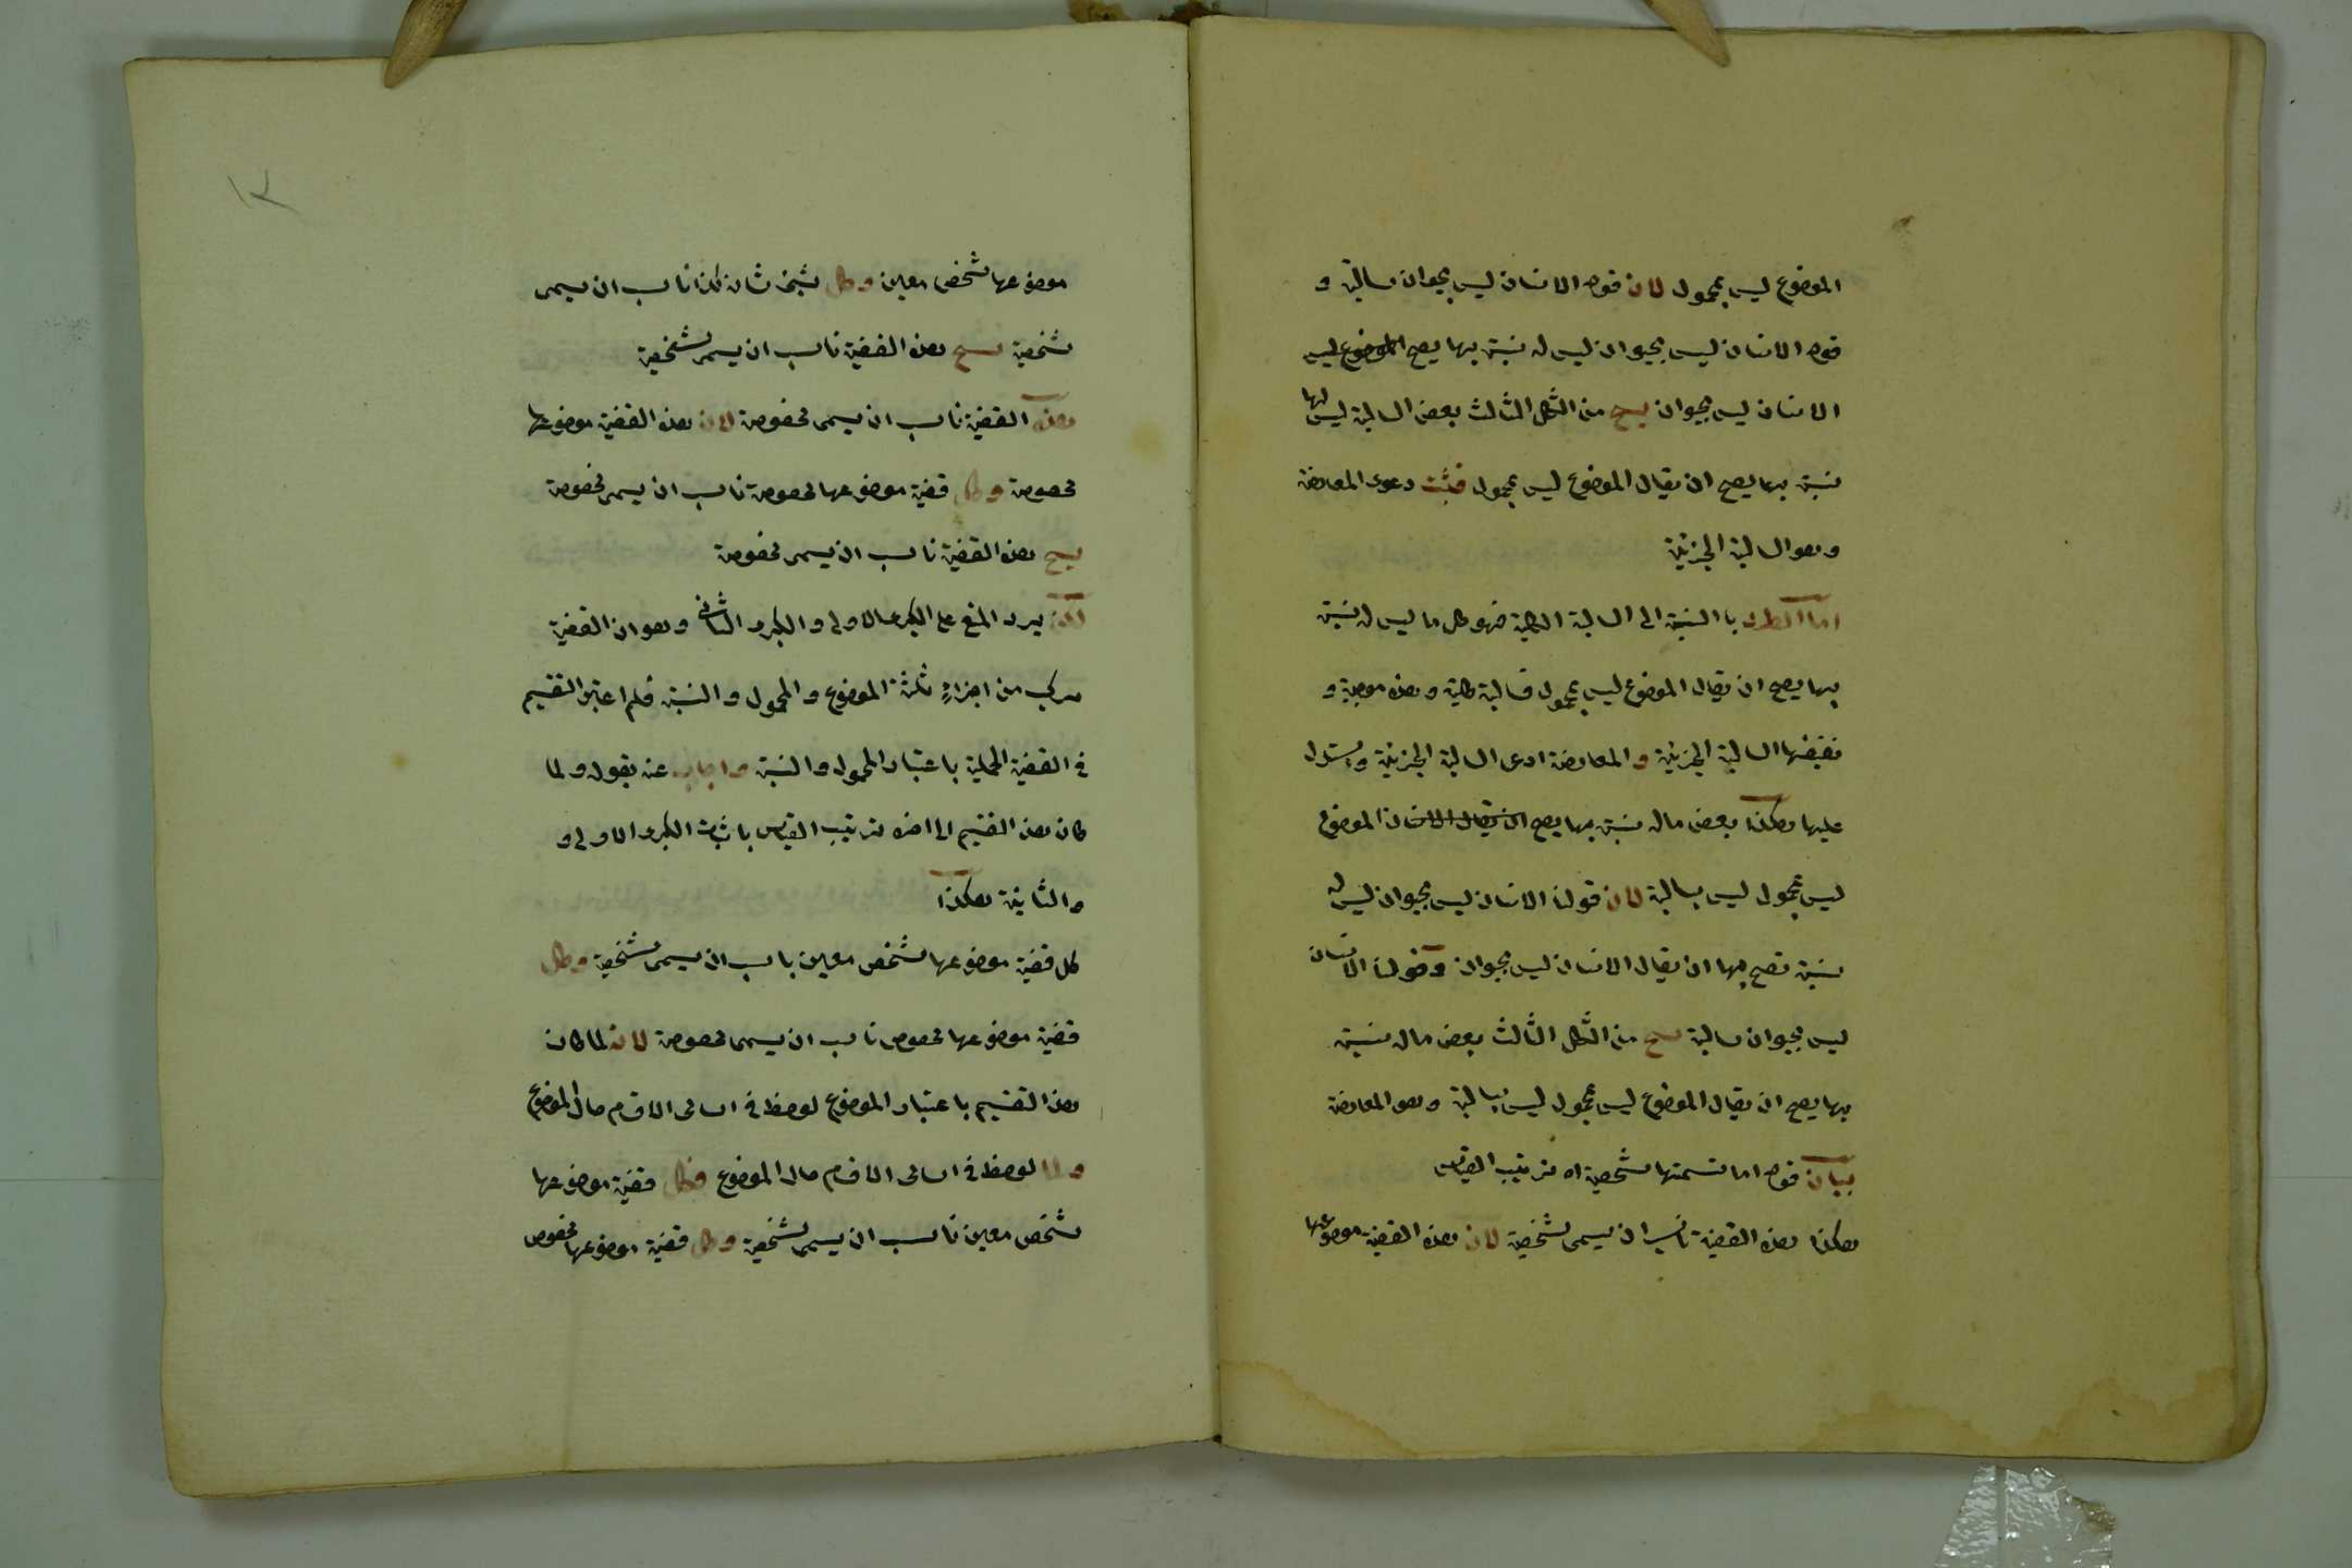 الموضوع ليس بمحمول لان قوله الانسان ليس بحيوان سالبة و
قوله الانسان ليس بحيوان ليس له نسبة بها يصح الموضوع ليس
الانسان ليس بحيوان ينتج من الشكل الثالث بعض السالبة ليس لها
نسبة بها يصح ان يقال الموضوع ليس بمحمول فثبت دعوى المعارضة
وهو السالبة الجزئية
اما الطرد بالنسبة الى السالبة الكلية فهو كل ما ليس له نسبة
بها يصح ان يقال الموضوع ليس بمحمول فسالبة كلية وهذه موجبة و
نقيضها السالبة الجزئية والمعارضة ادعى السالبة الجزئية ويستدل
عليها هكذا بعض ماله نسبة بها يصح ان يقال الانسان الموضوع
ليس بمحمول ليس بسالبة لان قولنا الانسان ليس بحيوان ليس له
نسبة تصح بها ان يقال الانسان ليس بحيوان وقولنا الانسان
ليس بحيوان سالبة ينتج من الشكل الثالث بعض ماله نسبة
بها يصح ان يقال الموضوع ليس بمحمول ليس بسالبة وهو المعارضة
بيان قوله اما تسمتها شخصية اه ترتيب القياس
هكذا هذه القضية ناسب ان يسمى شخصية لان هذه القضية موضوعها
١٢
موضوعها شخص معين وكل شيئ شانه كذا ناسب ان يسمى
شخصية ينتج هذه القضية ناسب ان يسمى شخصية
هذه القضية ناسب ان يسمى مخصوصة لان هذه القضية موضوعها
مخصوصة وكل قضية موضوعها مخصوصة ناسب ان يسمى مخصوصة
ينتج هذه القضية ناسب ان يسمى مخصوصة
لكن يرد المنع على الكبرى الاولى والكبرى الثانى وهو ان القضية
مركب من اجزاء ثلثة الموضوع والمحمول والنسبة فلم اعتبر التقسيم
فى القضية الحملية باعتبار المحمول والنسبة واجاب عنه بقوله ولما
كان هذا التقسيم الى اخره ترتيب القياس باثبات الكبرى الاولى و
والثانية هكذا
كل قضية موضوعها شخص معين ناسب ان يسمى شخصية وكل
قضية موضوعها مخصوص ناسب ان يسمى مخصوصة لان لما كان
هذا التقسيم باعتبار الموضوع لوحظ فى اسامى الاقسام حال الموضوع
ولما لوحظ فى اسامى الاقسام حال الموضوع فكل قضية موضوعها
شخص معين ناسب ان يسمى شخصية وكل قضية موضوعها مخصوص